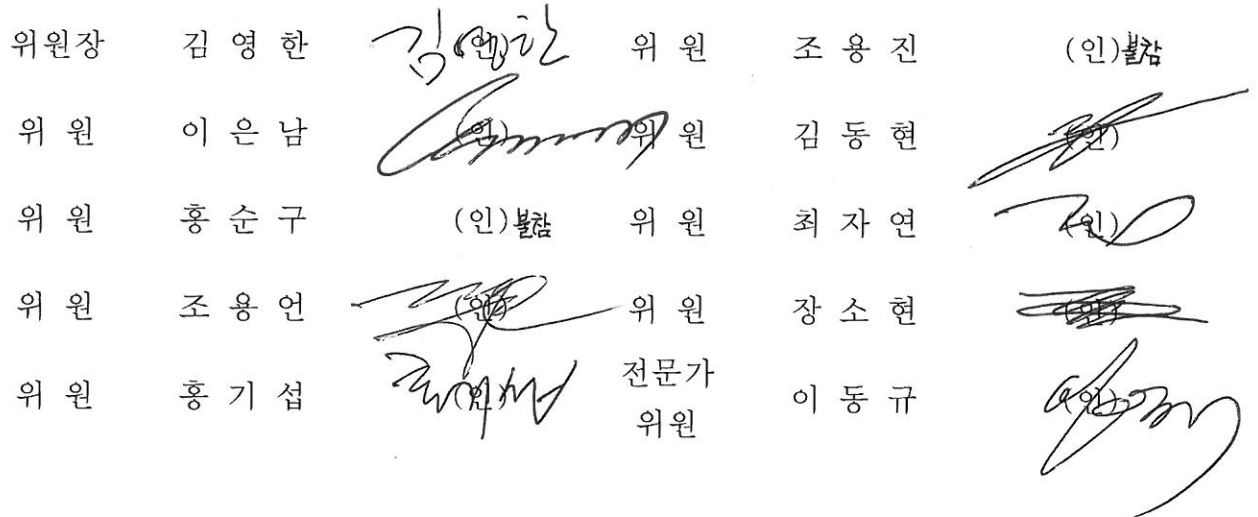 위원장 김 영 한 (인) 김영한 위 원 조 용 진 (인)불참
위 원 이 은 남 (인) 위 원 김 동 현 (인)
위 원 홍 순 구 (인)불참 위 원 최 자 연 (인)
위 원 조 용 언 (인) 위 원 장 소 현 (인)
위 원 홍 기 섭 (인) 전문가 위원 이 동 규 (인)